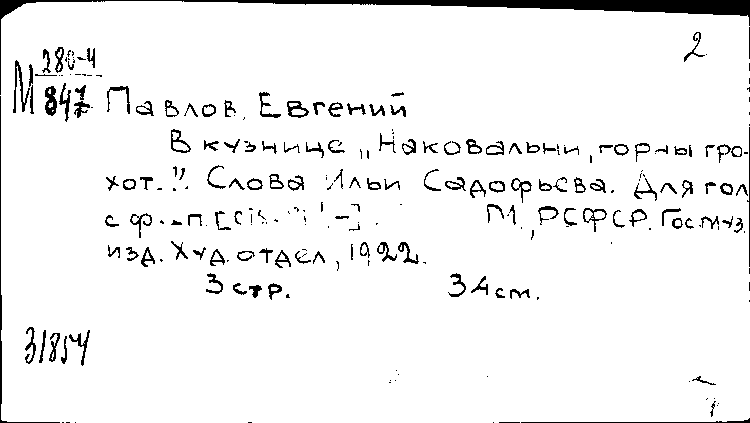 2
М 280-4
847
Павлов, Евгений
В кузнице „Наковальни, горны гро-
хот.." Слова Ильи Садофьева. Для гол.
с ф.-п. М., РСФСР. Гос. муз.
изд. Худ. отдел, 1922.
3 стр. 34 см.
31854